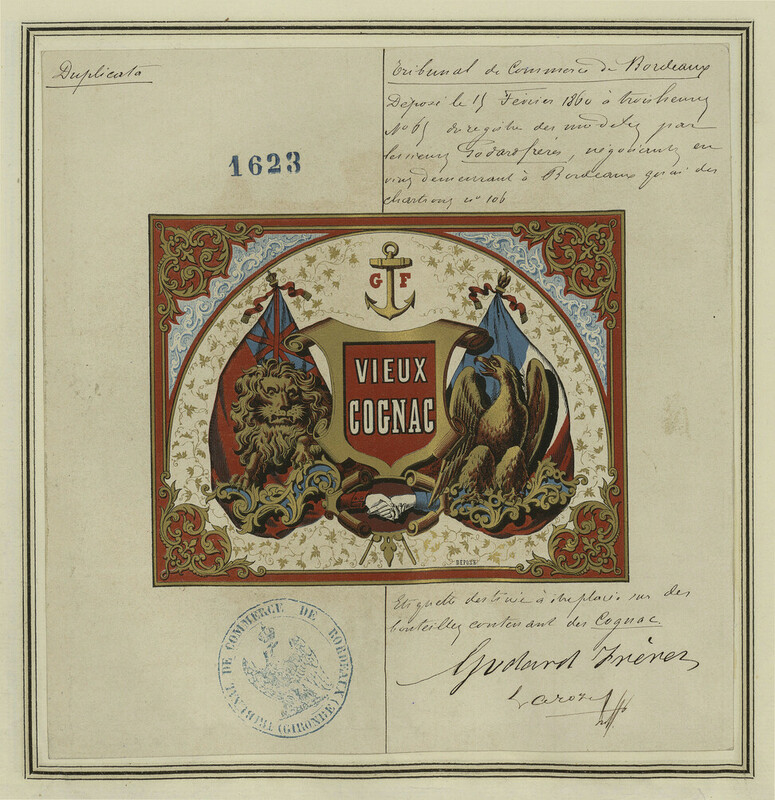 Duplicata
1623
Tribunal de Commerce de Bordeaux
Déposé le 15 Février 1860 à trois heures
No 65 du registre des modèles par
les sieurs Godard frères, négociants en
vins demeurant à Bordeaux quai des
chartrons no 106
G F
VIEUX
COGNAC
DÉPOSÉ
Etiquette destinée à être placée sur des
bouteilles contenant des Cognac.
Godard Frères
TRIBUNAL DE COMMERCE DE BORDEAUX
(GIRONDE)